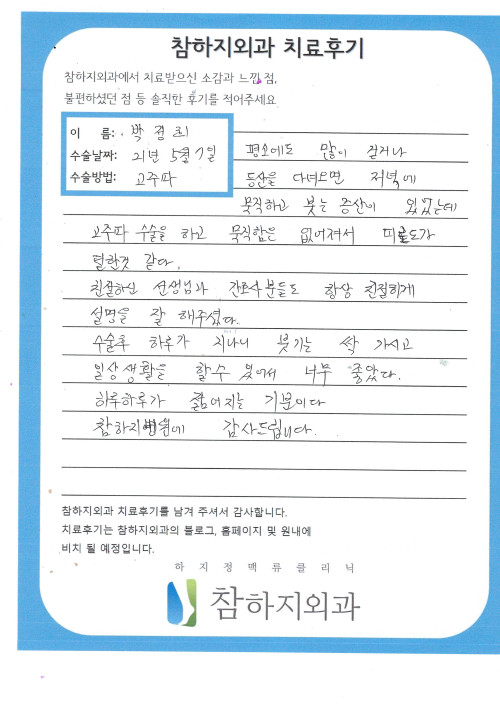 참하지외과 치료후기
참하지외과에서 치료받으신 소감과 느낀 점,
불편하셨던 점 등 솔직한 후기를 적어주세요
이 름: 박경희
수술날짜: 21년 5월 7일
수술방법: 고주파
평소에도 많이 걷거나
등산을 다녀오면 저녁에
묵직하고 붓는 증산이 있었는데
고주파 수술을 하고 묵직함은 없어져서 피로도가
덜한것 같다.
친절하신 선생님과 간호사분들도 항상 친절하게
설명을 잘 해주셨다.
수술후 하루가 지나니 붓기는 싹 가시고
일상생활은 할수 있어서 너무 좋았다.
하루하루가 젊어지는 기분이다
참하지병원에 감사드립니다.
참하지외과 치료후기를 남겨 주셔서 감사합니다.
치료후기는 참하지외과의 블로그, 홈페이지 및 원내에
비치 될 예정입니다.
하지정맥류클리닉
참하지외과